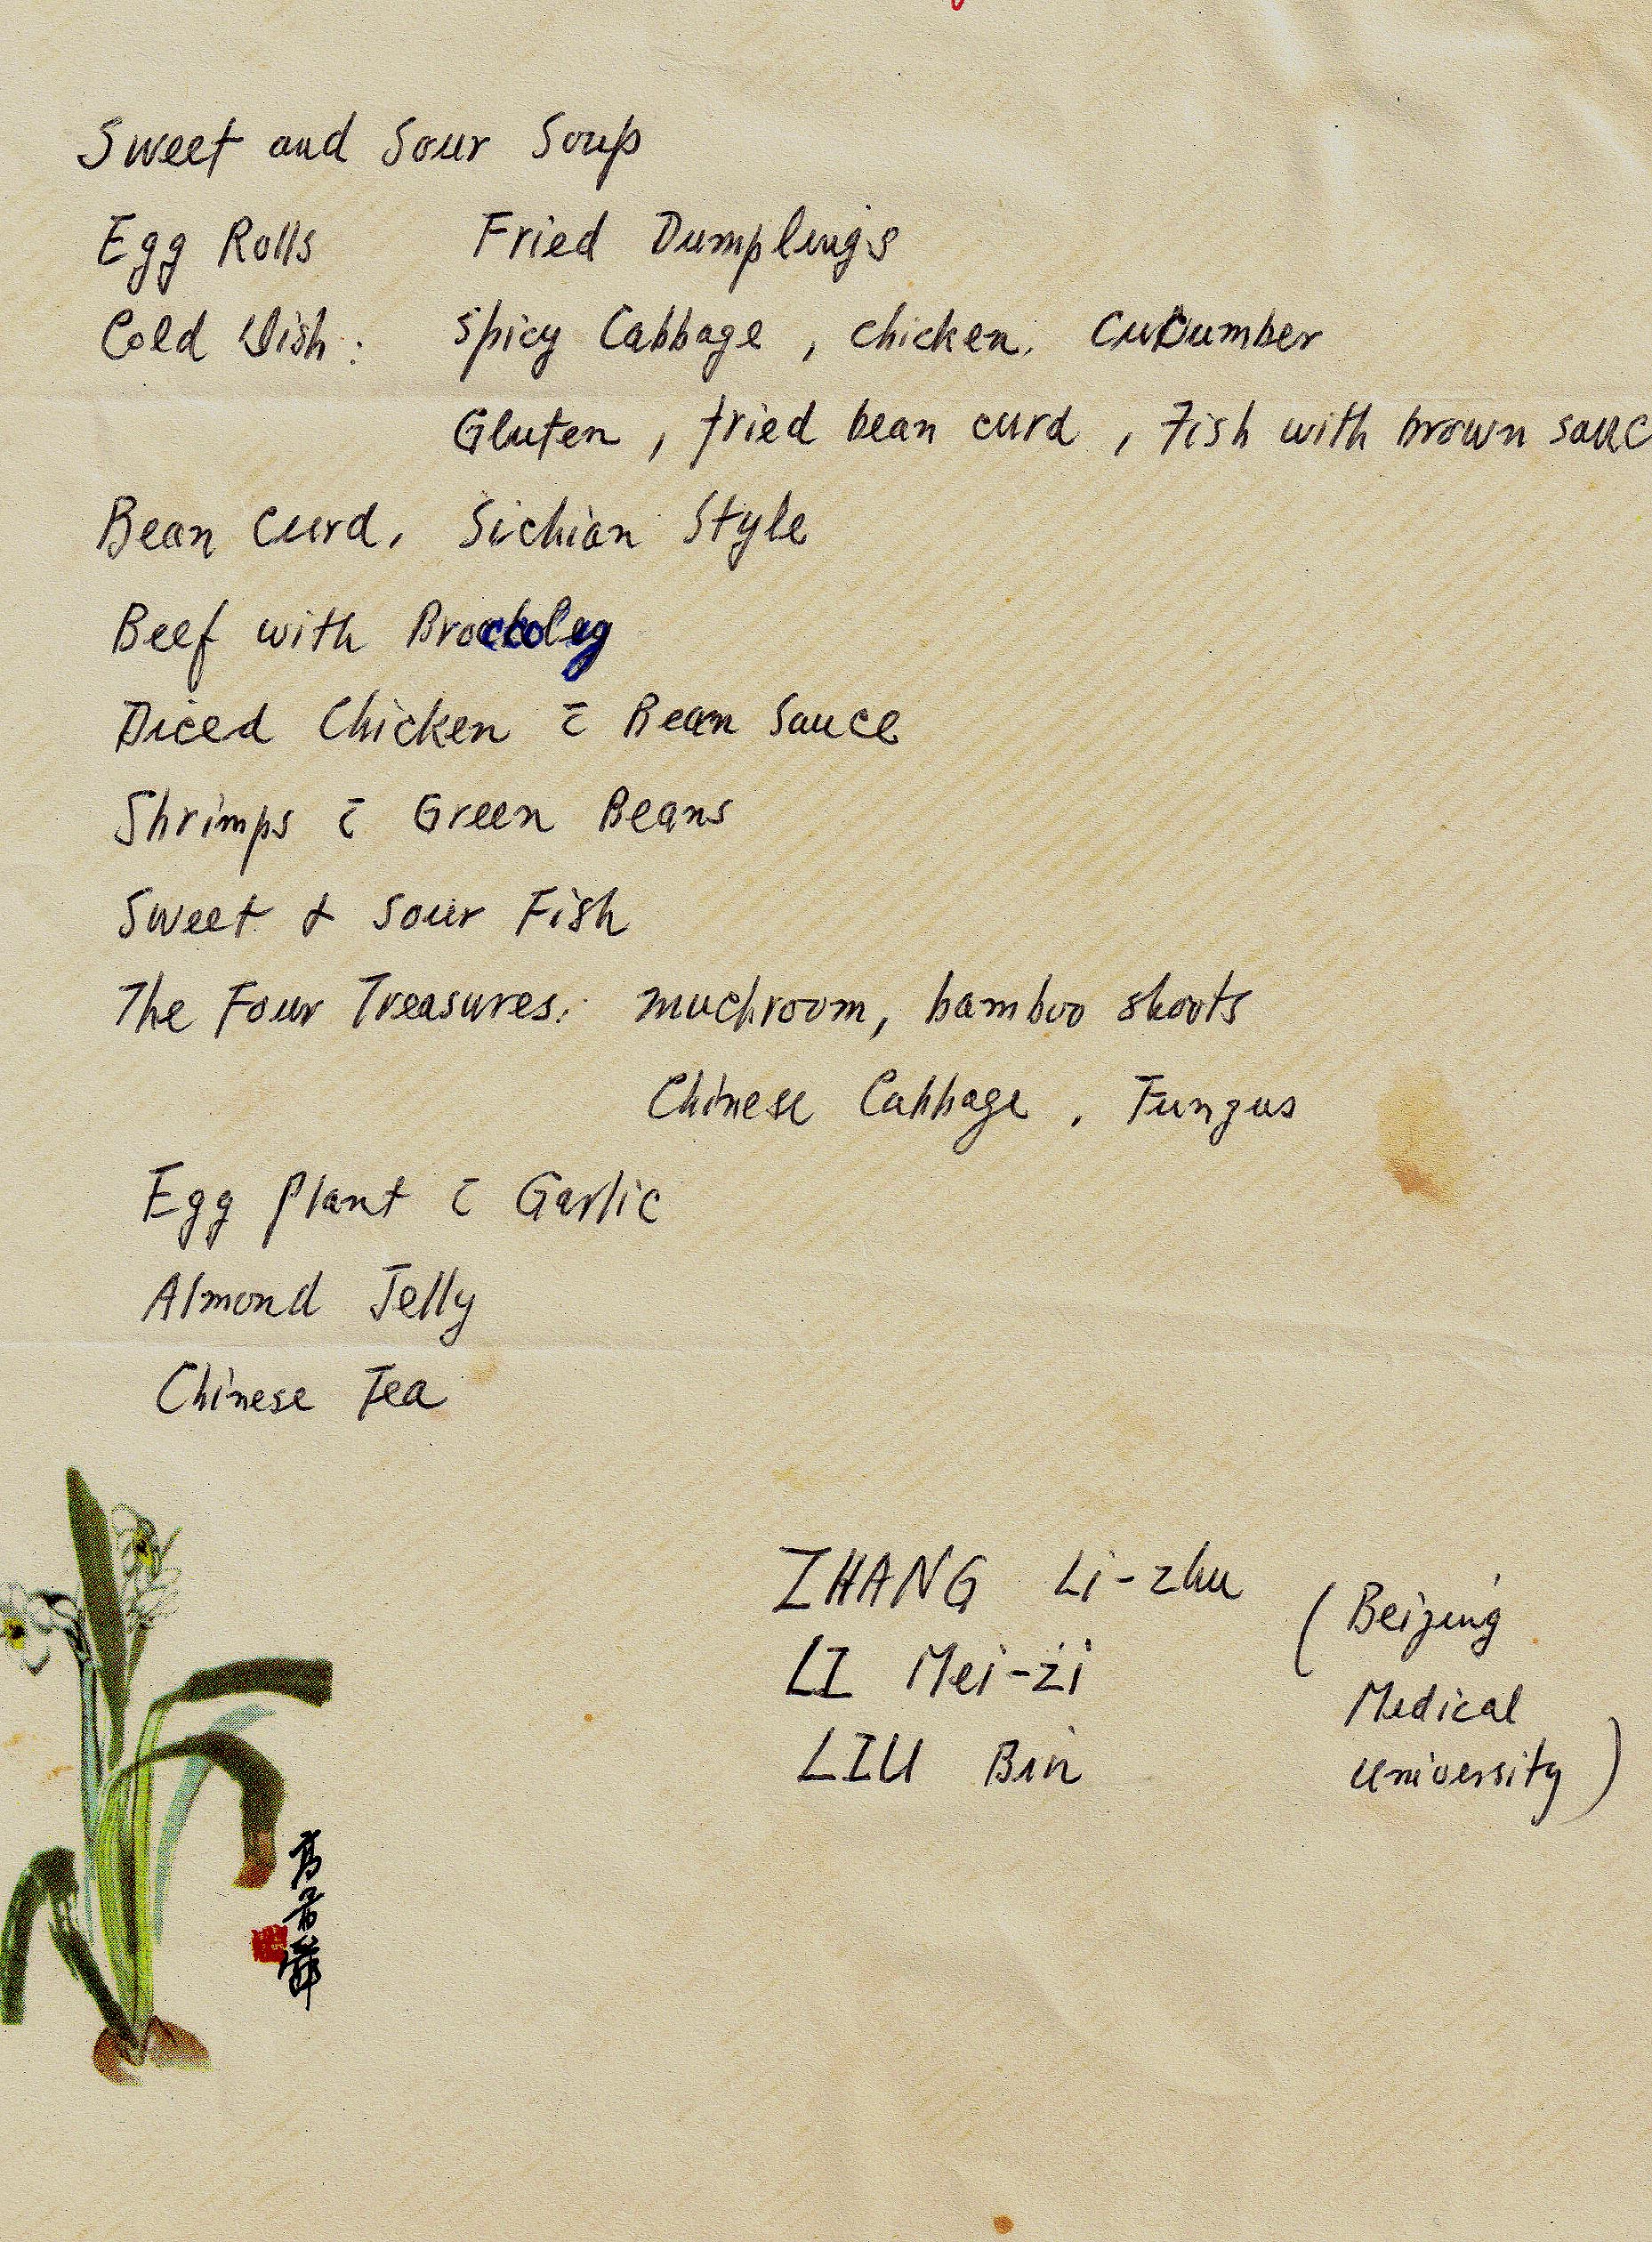 Sweet and Sour Soup
Egg Rolls Fried Dumplings
Cold Dish: Spicy Cabbage, chicken, Cucumber
Gluten, fried bean curd, Fish with brown sauc
Bean Curd, Sichian Style
Beef with
Diced Chicken c̄ Bean Sauce
Shrimps c̄ Green Beans
Sweet & Sour Fish
The Four Treasures: muchroom, bamboo shoots
Chinese Cabbage, Fungus
Egg Plant c̄ Garlic
Almond Jelly
Chinese Tea
ZHANG Li-zhu (Beijing
LI Mei-zi Medical
LIU Bin University)